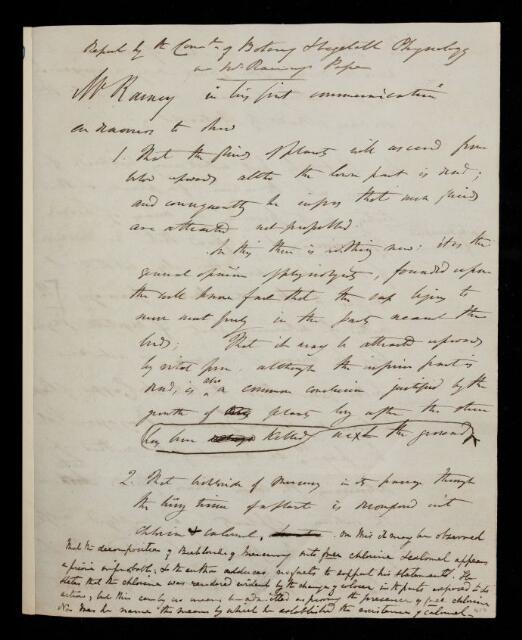 Report by the Com.tee of Botany & Vegetable Physiology
on Mr Rainey's Paper
Mr Rainey in his first communication
endeavours to shew
1. That the fluids of plants will ascend from
below upwards altho the lower part is dead;
and consequently he infers that such fluids
are attracted not propelled.
In this there is nothing new: it is the
general opinion of physiologists, founded upon
the well known fact that the sap begins to
move most freely in the parts nearest the
buds; That it may be attracted upwards
by vital force, although the inferior part is
dead, is also a common conclusion justified by the
growth of plants long after the stem
has been killed next the ground
2. That bichloride of Mercury in its passage through
the living tissue of a plant is decomposed into
chlorine & calomel. on this it may be observed
that the decomposition of Bichloride of Mercury into free chlorine & calomel appears
a priori improbable; & the author adduces no facts to support his statements. He
states that the chlorine was rendered evident by the change of colour in the parts exposed to its
action; but this can by no means be admitted as proving the presence of free chlorine
Nor has he named the means by which he established the existence of Calomel.